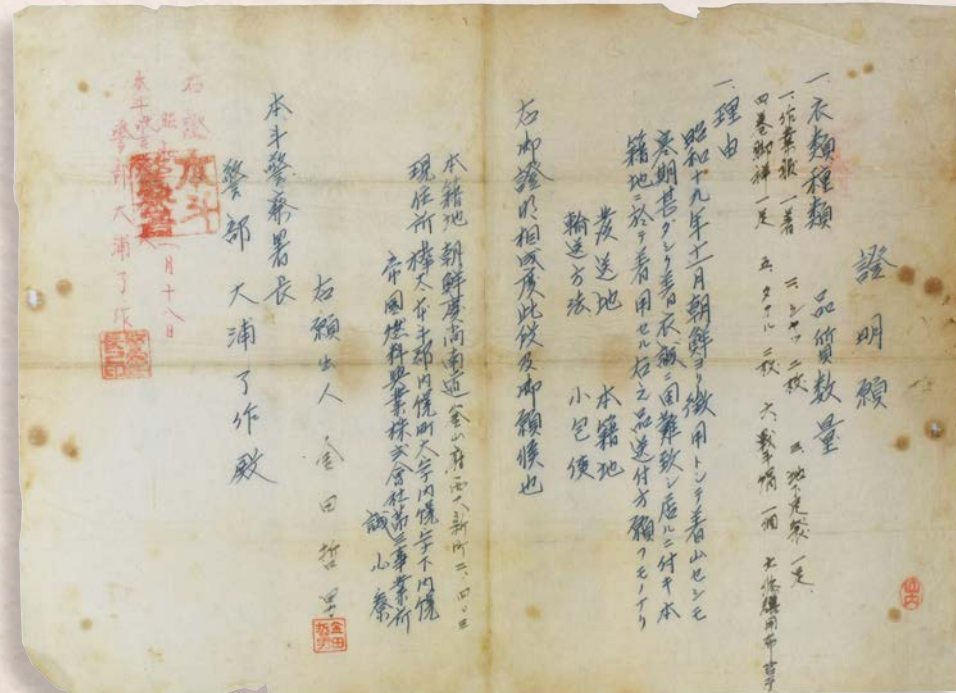 證明願
一、衣類種類 品質数量
一、作業衣 一着 二、シャツ 二枚 三、地下足袋 一足
四、巻脚絆 一足 五、タオル 二枚 六、戦斗帽 一個
一、理由
昭和十九年十一月朝鮮ヨリ徴用トシテ着山セシモ
寒期甚ダシク着日衣誠ニ困難致シ居ルニ付キ本
籍地ニ於テ着用セル右之品送付方願フモノナリ
発送地 本籍地
輸送方法 小包便
右御證明相成度此状及御願候也
本籍地 朝鮮慶尚南道釜山府
現住所 樺太本斗郡内幌町大字内幌字下内幌
帝國燃料興業株式會社第三事業所
誠心寮
右願出人 金田哲
本斗警察署長
警部 大浦了作殿
右證
月十八日
本斗警
警部 大浦了作